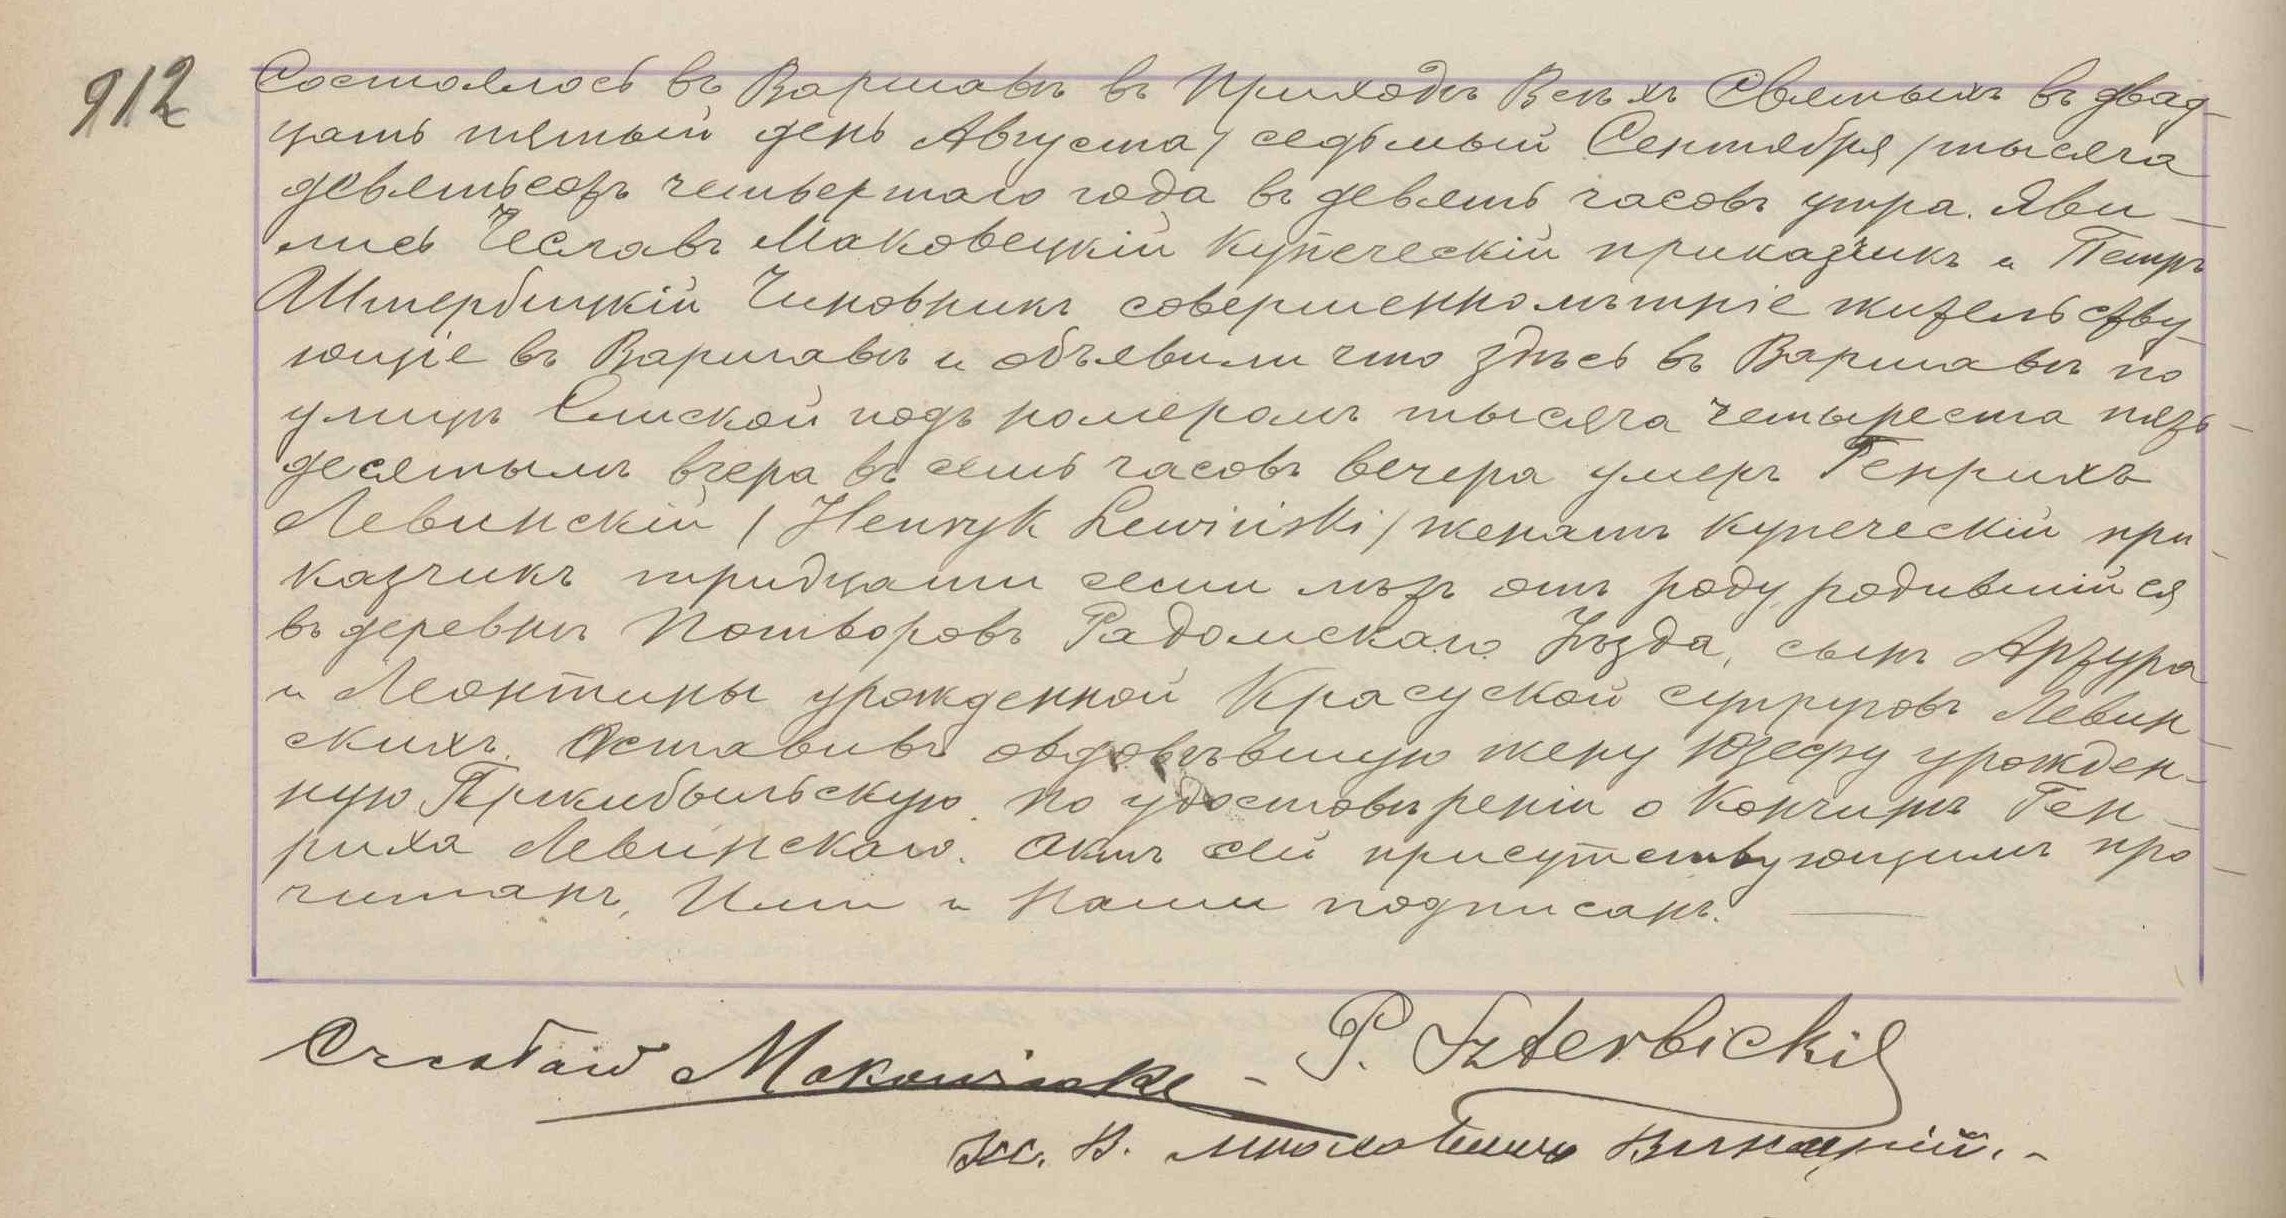 912
Состоялось въ Варшавѣ въ Приходѣ Всѣхъ Святыхъ въ двад-
цать пятый день Августа / седьмый Сентября / тысяча
девятьсотъ четвертаго года въ девять часовъ утра. Яви-
лись Чеславъ Маковецкій купеческій приказчикъ и Петръ
Штербицкій Чиновникъ совершеннолѣтніе жительству-
ющіе въ Варшавѣ и объявили что здѣсь въ Варшавѣ по
улицѣ подъ номеромъ тысяча четыреста пять-
десятымъ вчера въ семь часовъ вечера умеръ Генрихъ
Левинскій / Henryk Lewiński / женатъ купеческій при-
казчикъ тридцати семи лѣтъ отъ роду, родившійся
въ деревнѣ Потворовъ Радомскаго Уѣзда, сынъ Артура
и Леонтины урожденной Красуской супруговъ Левин-
скихъ. Оставивъ овдовѣвшую жену Юзефу урожден-
ную По удостовѣреніи о Кончинѣ Ген-
риха Левинскаго. Актъ сей присутствующимъ про-
читанъ, Ими и Нами подписанъ.
Czesław P. Szterbicki
Кс. В. Викарій.